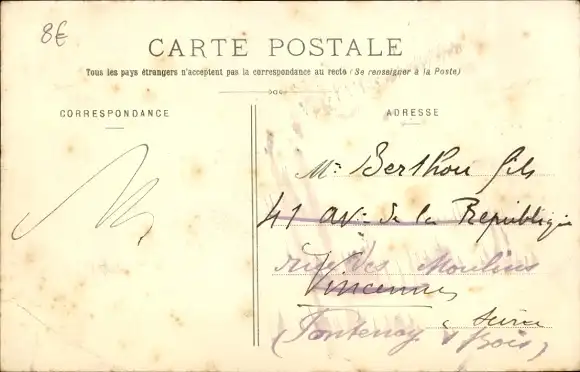 8€
CARTE POSTALE
Tous les pays étrangers n'acceptent pas la correspondance au recto (Se renseigner à la Poste)
CORRESPONDANCE
ADRESSE
Mr Berthou fils
41 av. de la République
rue des Moulins
Vincennes
Seine
(Fontenay s Bois)